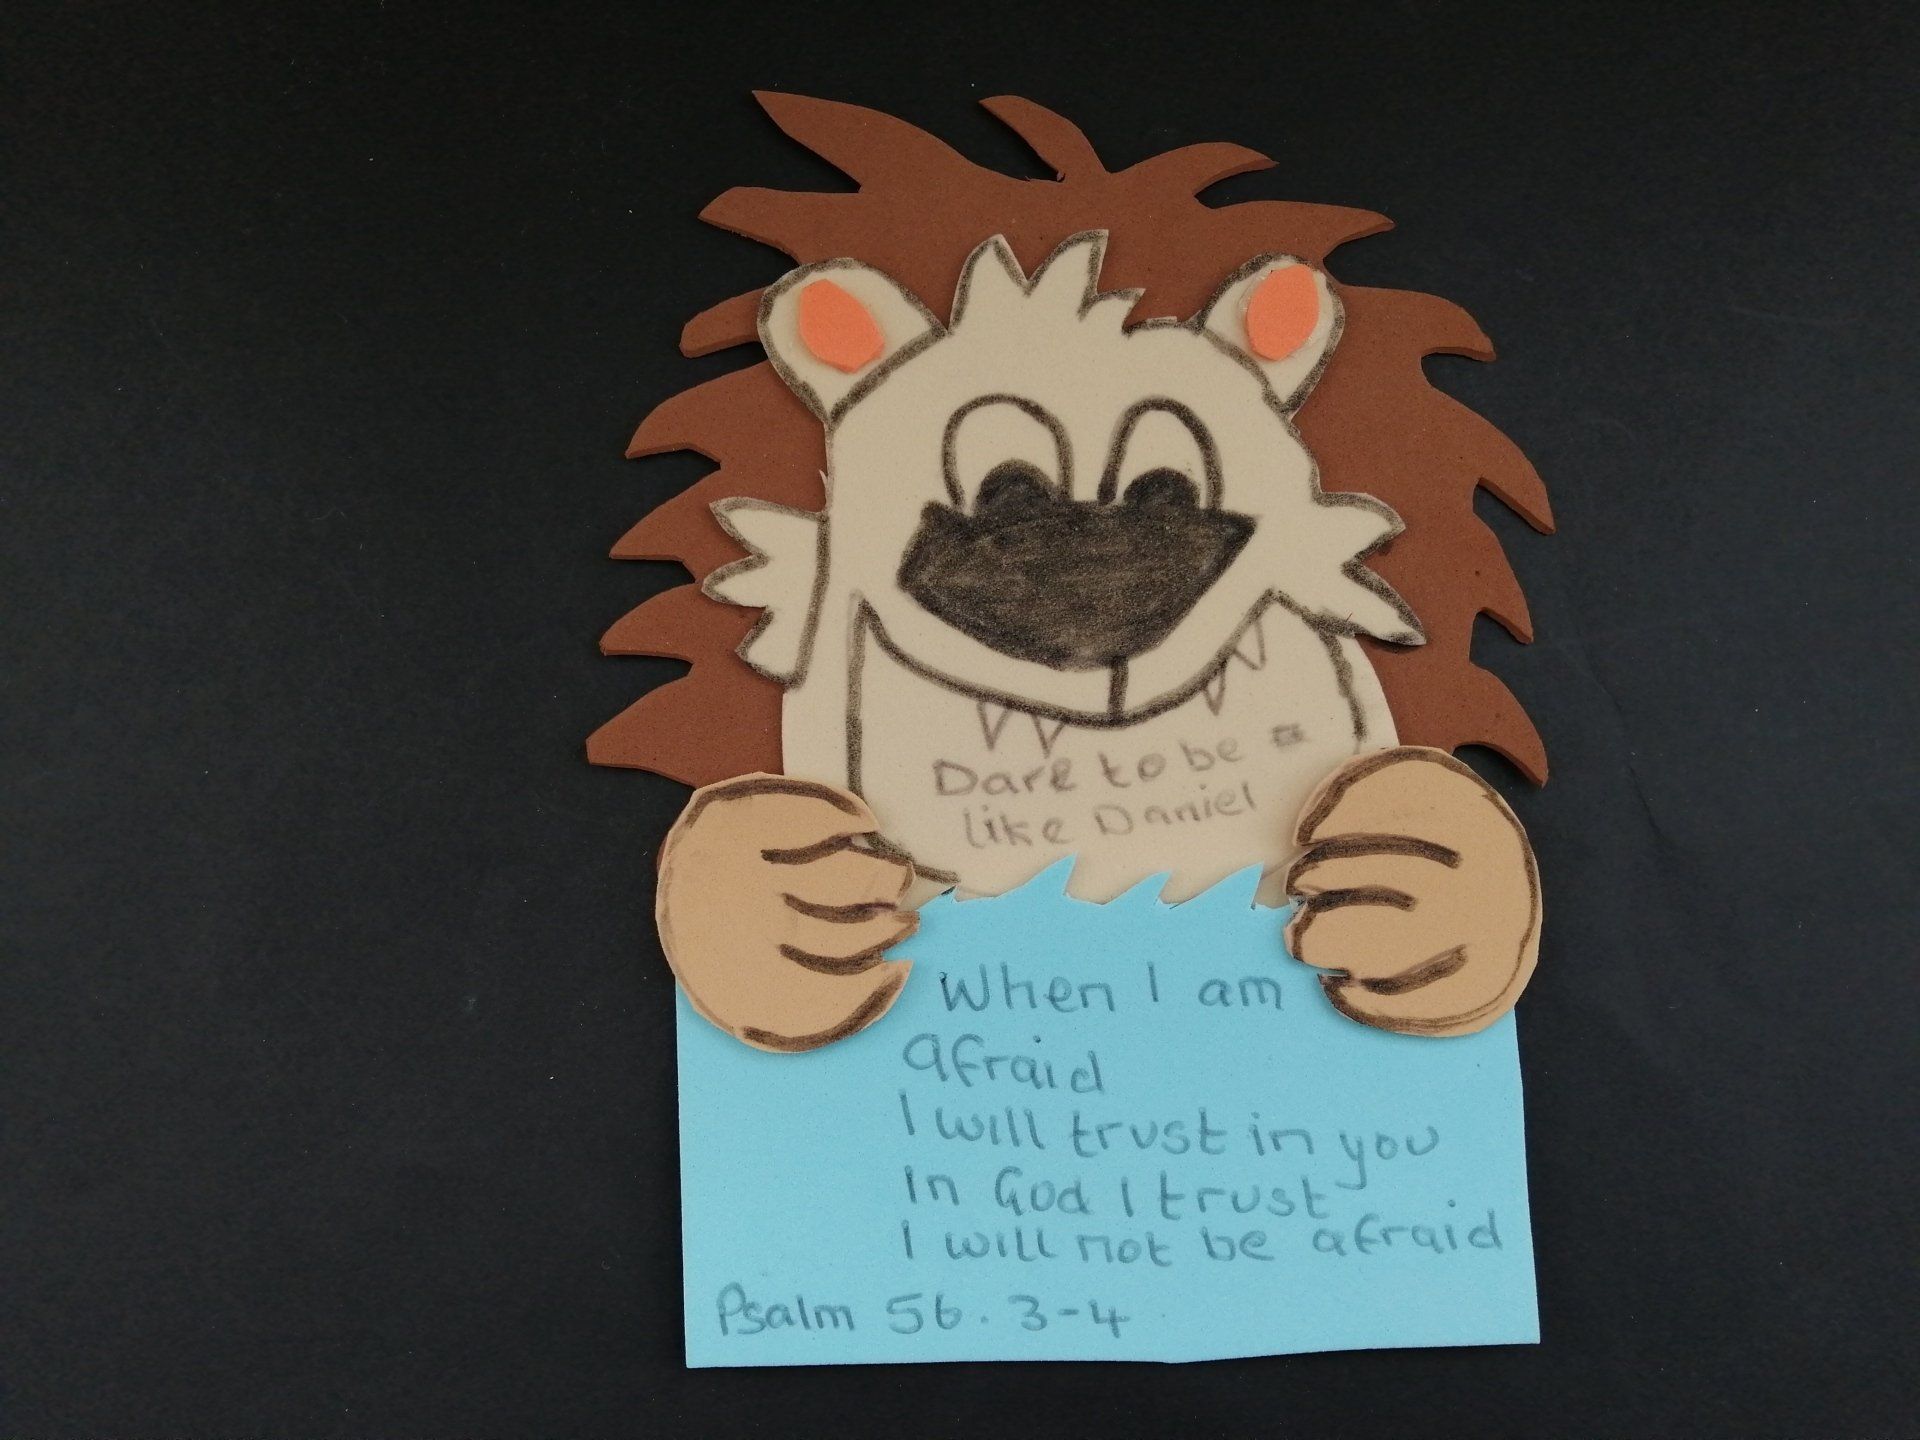 Dare to be
like Daniel
When I am
afraid
I will trust in you
In God I trust
I will not be afraid
Psalm 56. 3-4